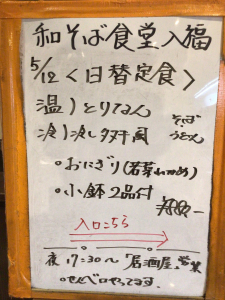 和そば食堂入福
5/12<日替定食>
温)とりなん
冷)冷し タヌキ風
そば
うどん
・おにぎり(若菜わかめ)
・小鉢2品付
入口こちら
夜17:30〜「居酒屋」営業
・せんべロやってます。